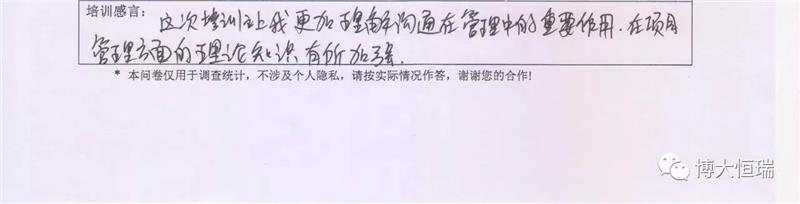 培训感言：
这次培训让我更加理解沟通在管理中的重要作用．在项目
管理方面的理论知识有所加强．
* 本问卷仅用于调查统计，不涉及个人隐私，请按实际情况作答，谢谢您的合作!
博大恒瑞